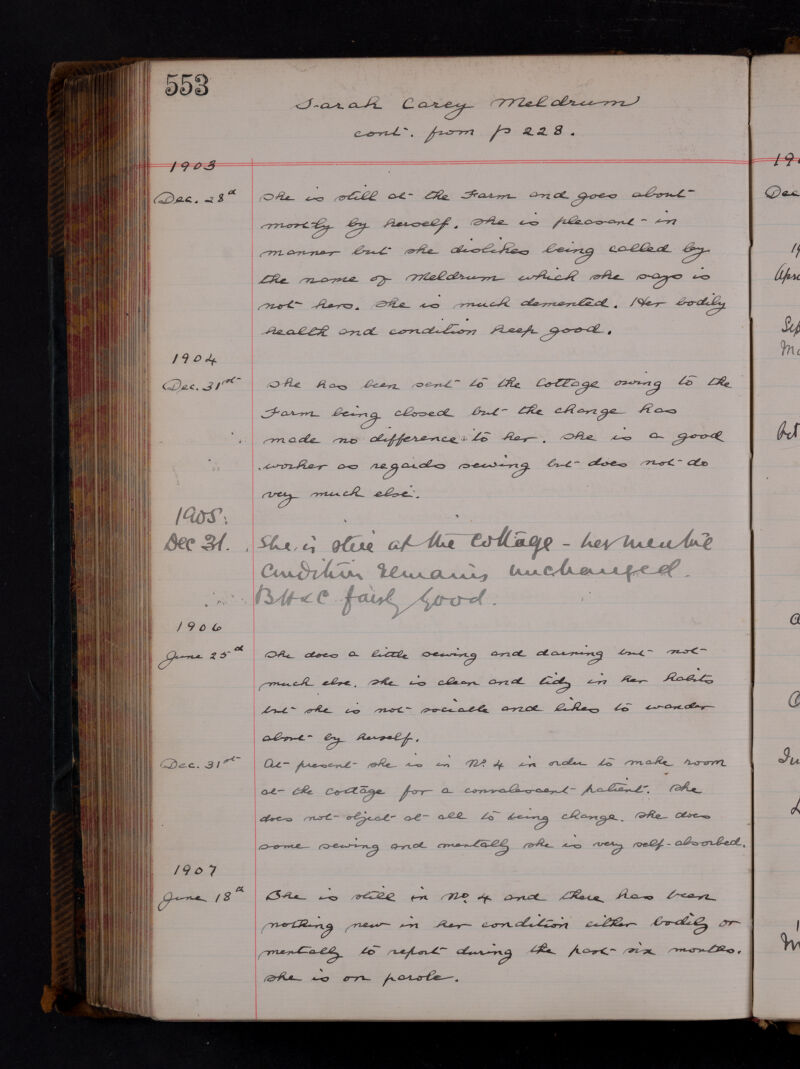 553
Sarah Carey Meldrum
cont. from p 228.
1903
Dec. 28th She is still at the Farm and goes about
mostly by herself. She is pleasant in
manner but she dislikes being called by
the name of Meldrum which she says is
not hers. She is much demented. Her bodily
health and condition keep good.
1904
Dec. 31st She has been sent to the Cottage owing to the
Farm being closed but the change has
made no difference to her. She is a good
worker as regards sewing but does not do
very much else.
1905.
Dec 31. She is still at the Cottage - her mental
Condition remains unchanged.
BH & C fairly good.
1906
June 25th She does a little sewing and darning but not
much else. She is clean and tidy in her habits
but she is not sociable and likes to wander
about by herself.
Dec. 31st At present she is in No. 4 in order to make room
at the cottage for a convalescent patient. She
does not object at all to being change. She does
some sewing and mentally she is very self-absorbed.
1907
June 18th She is still in No. 4 and there has been
nothing new in her condition either bodily or
mentally to report during the past six months.
She is on parole.
19
Dec
19
Sep
Oct